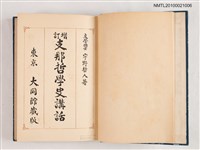 NMTL20100021006
文學博士 宇野哲人著
增訂 支那哲學史講話
東京 大同館藏版